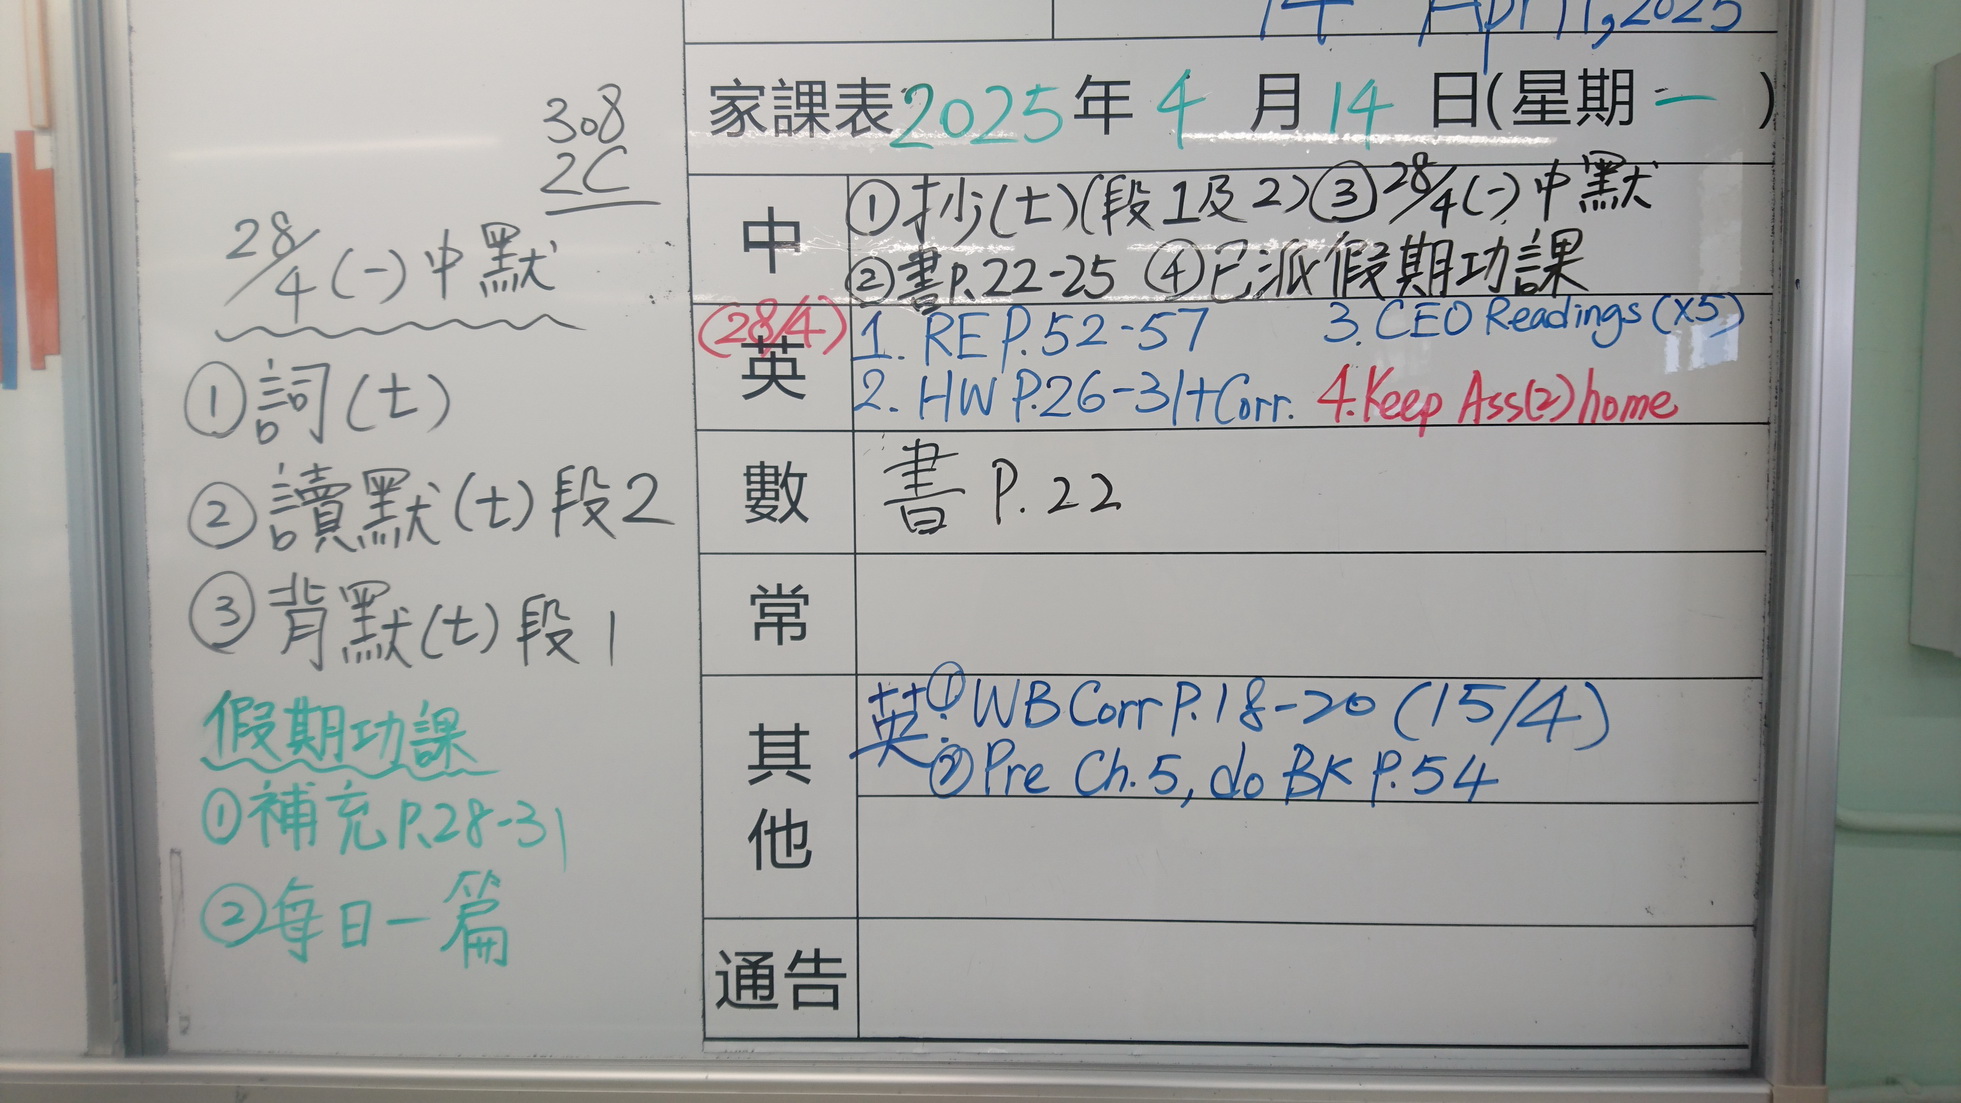 14 April, 2025
308
2C
28/4 (一) 中默
①詞(七)
②讀默(七)段2
③背默(七)段1
假期功課
①補充P.28-31
②每日一篇
家課表2025年4月14日(星期一)
中
①抄(七)(段1及2)③28/4(一)中默
②書P.22-25 ④已派假期功課
(28/4)
英
1. RE P.52-57 3. CEO Readings (x5)
2. HW P.26-31+Corr. 4. Keep Ass(2) home
數
書 P.22
常
其他
英:①WB Corr P.18-20 (15/4)
②Pre Ch.5, do BK P.54
通告